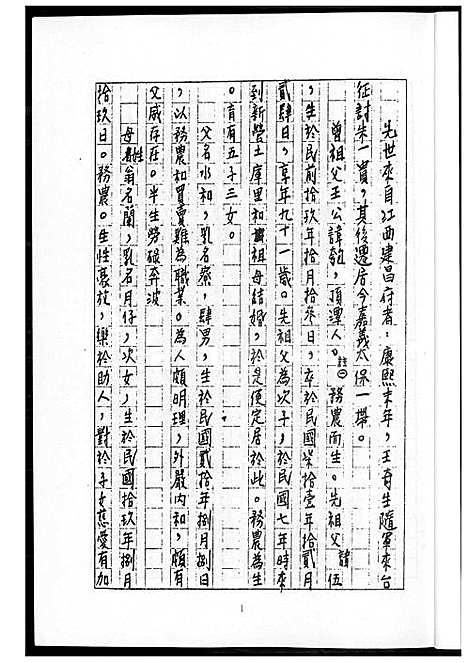 先世來自江西建昌府者:康熙末年,王奇生隨軍來台
征討朱一貴,其後遷居今嘉義太保一帶。
曾祖父王公諱,頂潭人。註㊀務農而生。先祖父諱伍
,生於民前拾玖年拾月拾參日,卒於民國柒拾壹年拾貳月
貳肆日,享年九十一歲。先祖父為次子,於民國七年時來
到新營土庫里和祖母結婚,於是便定居於此。務農為生
。育有五子三女。
父名水和,乳名寮,肆男,生於民國貳拾年捌月捌日
,以務農和買賣雞為職業。為人頗明理,外嚴內和,頗有
父威存在。半生勞碌奔波
母姓翁名蘭,乳名月仔,次女,生於民國拾玖年捌月
拾玖日。務農。生性豪放,樂於助人,對於子女慈愛有加
1